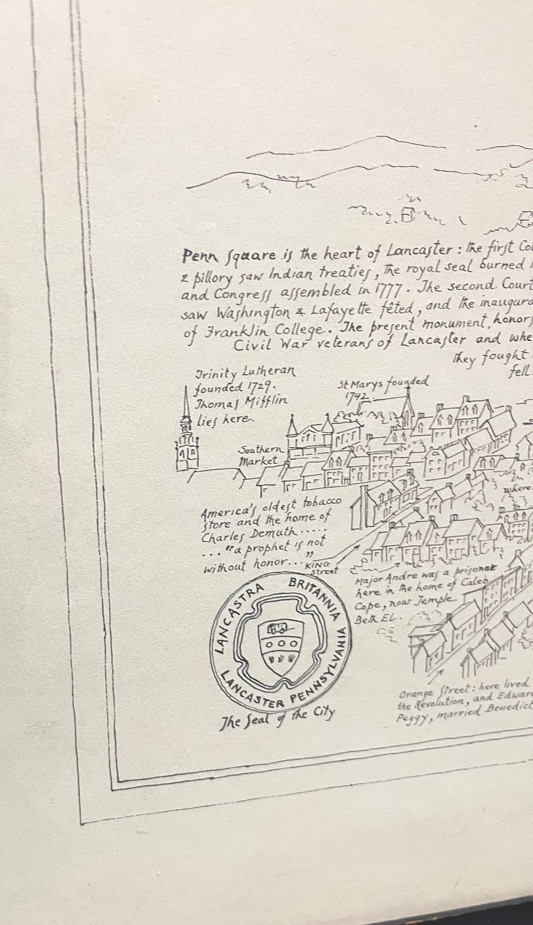 Penn Square is the heart of Lancaster: the first
& pillory saw Indian treaties, the royal seal burned
and Congress assembled in 1777. The second
saw Washington & Lafayette fêted, and the
of Franklin College. The present monument, honors
Civil War veterans of Lancaster and
they fought
fell
Trinity Lutheran
founded 1729.
Thomas Mifflin
lies here.
St Marys founded
1742
Southern
Market
America's oldest tobacco
store and the home of
Charles Demuth.....
... "a prophet is not
without honor..."
KING
street
where
Major Andre was a prisoner
here in the home of Caleb
Cope, now Temple
Beth EL.
LANCASTRA BRITANNIA
LANCASTER PENNSYLVANIA
The Seal of the City
Orange Street: here lived
the Revolution, and
Peggy, married